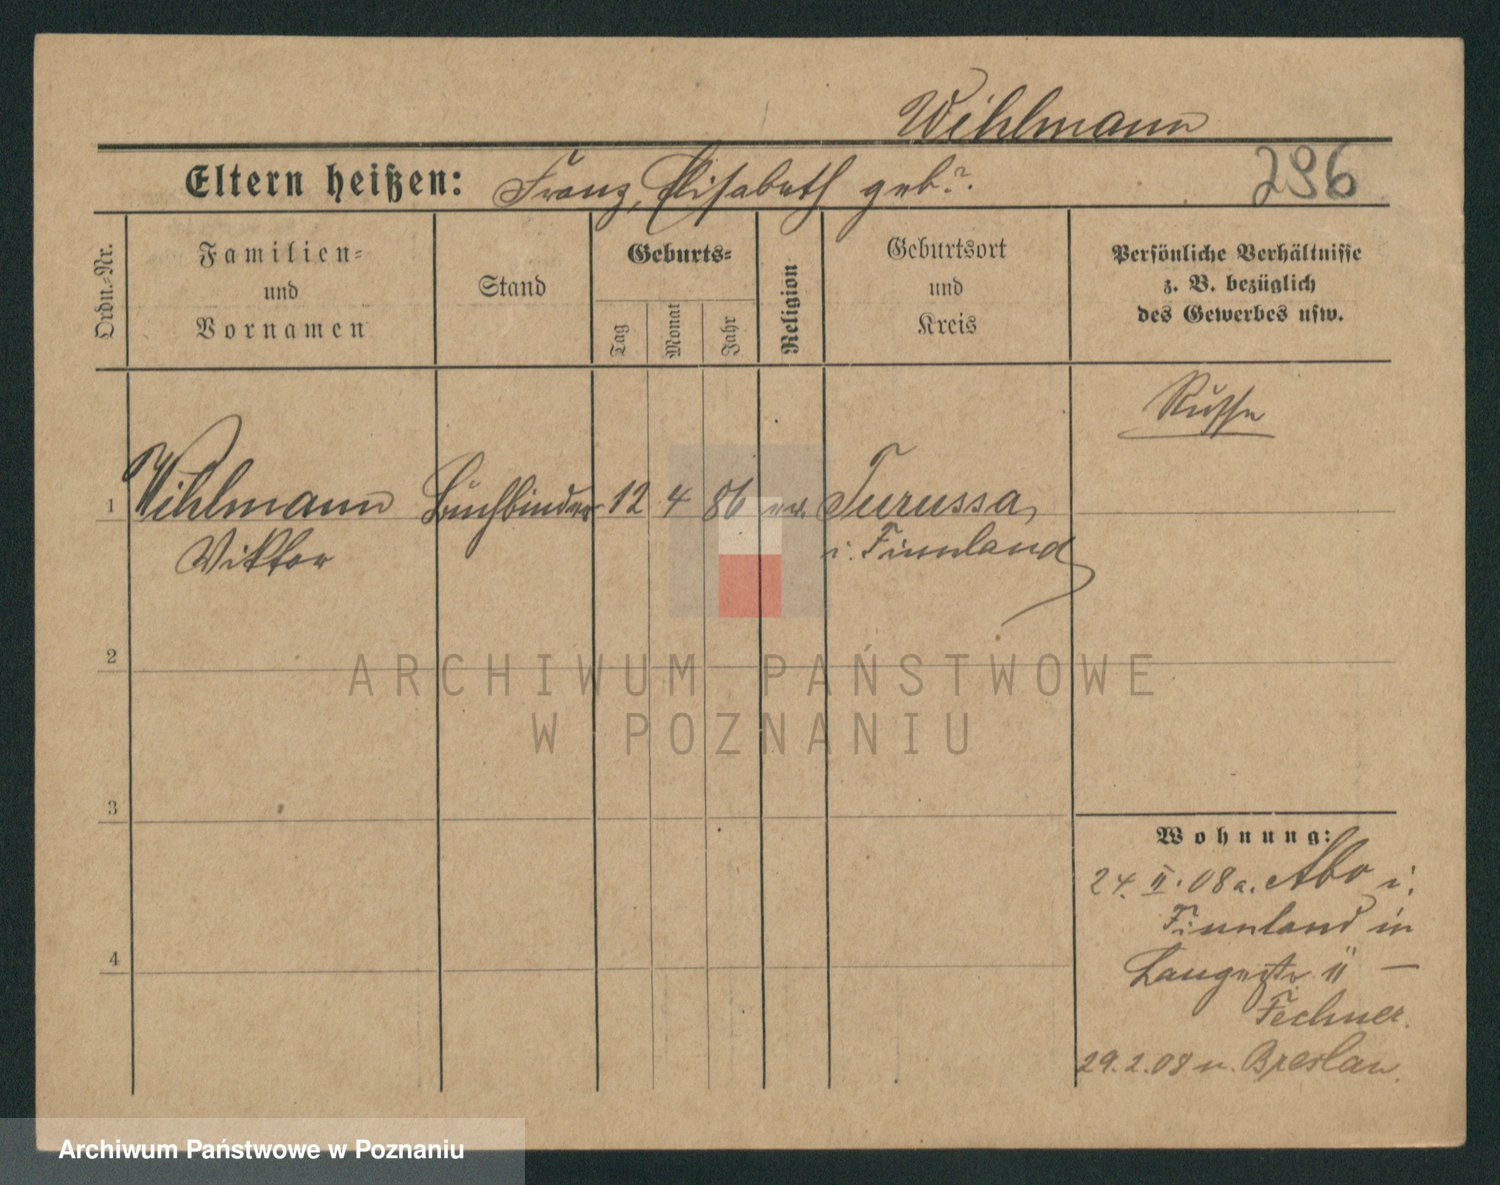 Wihlmann
Eltern heißen: Franz, Elisabeth geb ?.
296
Ordn.-Nr.
Familien-
und
Vornamen
Stand
Geburts-
Tag
Monat
Jahr
Religion
Geburtsort
und
Kreis
Persönliche Verhältnisse
z. B. bezüglich
des Gewerbes usw.
Russe
1 Wihlmann Buchbinder 12 4 86 ev. Turussa,
Viktor i. Finnland
2
3
4
ARCHIWUM PAŃSTWOWE
W POZNANIU
Wohnung:
24. II. 08 a. Abo i.
Finnland in
Langestr. 11 –
Fechner.
29.2.08 n. Breslau.
Archiwum Państwowe w Poznaniu